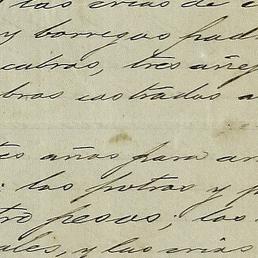 las crias de
y borregos pad
cabras, tres añej
bros castrados a
es años para an
: los potros y p
tro pesos; las
ales, y las crias